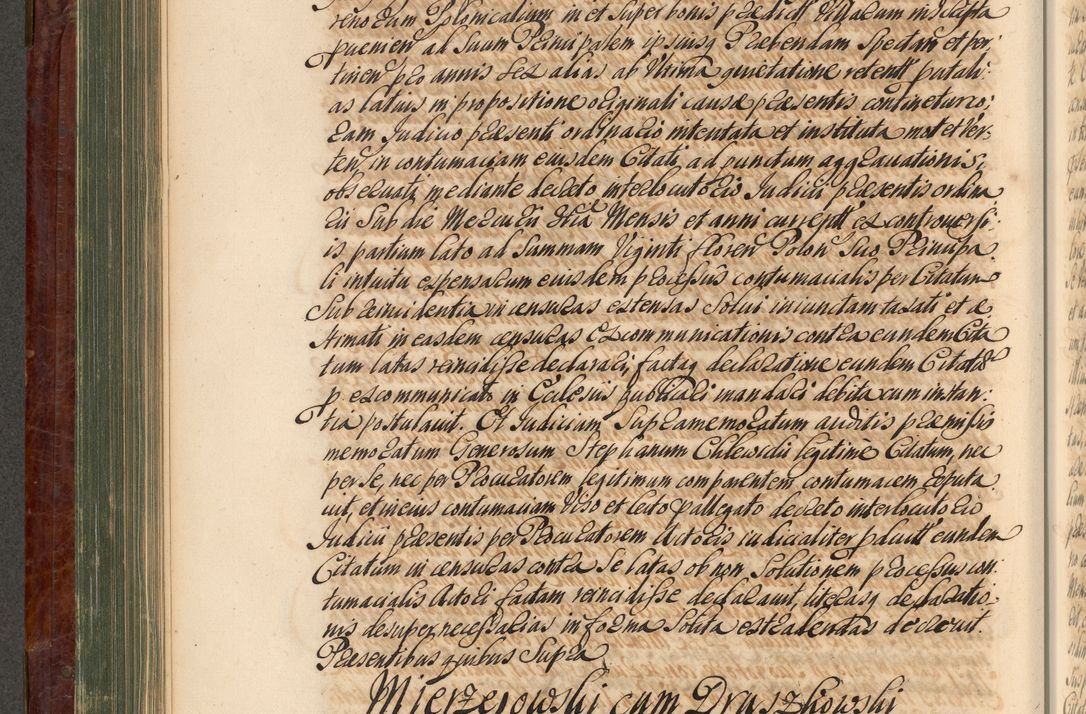 renorum Polonicalium in et super bonis praedictt Villarum in decepta
puenien ad Suum Principalem ipsiusq Praebendam Spectan et per
tinen pro annis sex alias ab Ultima quietatione retentt putali
as latius in propositione originali causae praesentis continetur co
ram Judicio praesenti ordinario intentata et instituta mot et ver
ten in contumaciam eiusdem Citati, ad punctum aggravationis
observati, mediante decreto interlocutorio Judicii praesentis ordina
rii Sub die Mercurii Mensis et anni currentt ex controversi
is partium lato ad Summam Viginti floren Polon Suo Principa
li intuitu expensarum eiusdem processus contumacialis per Citatum
Sub reincidentia in censuras extensas Solvi iniunctam taxati et a
firmati in easdem censuras excommunicationis contra eundem Cita
tum latas reincidisse declarari, factaq declaratione eundem Citatum
p excommunicato in Ecclesiis publicari mandari debita cum instan
tia postulavit. Et Judicium Supramemoratum auditis praemissis
memoratum Generosum Stephanum Chlewicki legitime Citatum, nec
per Se, nec per Procuratorem legitimum comparentem contumacem reputa
vit, et in eius contumaciam Viso et lecto pallegato decreto interlocutorio
Judicii praesentis per Procuratorem Actoris iudicialiter pductt eundem
Citatum in censuras contra Se latas ob non Solutionem processus con
tumacialis Actori factam reincidisse declaravit, literasq declaratio
nis desuper necessarias in forma Solita extradendas decrevit.
Praesentibus quibus Supra
Mierzejowski cum Druszkowski